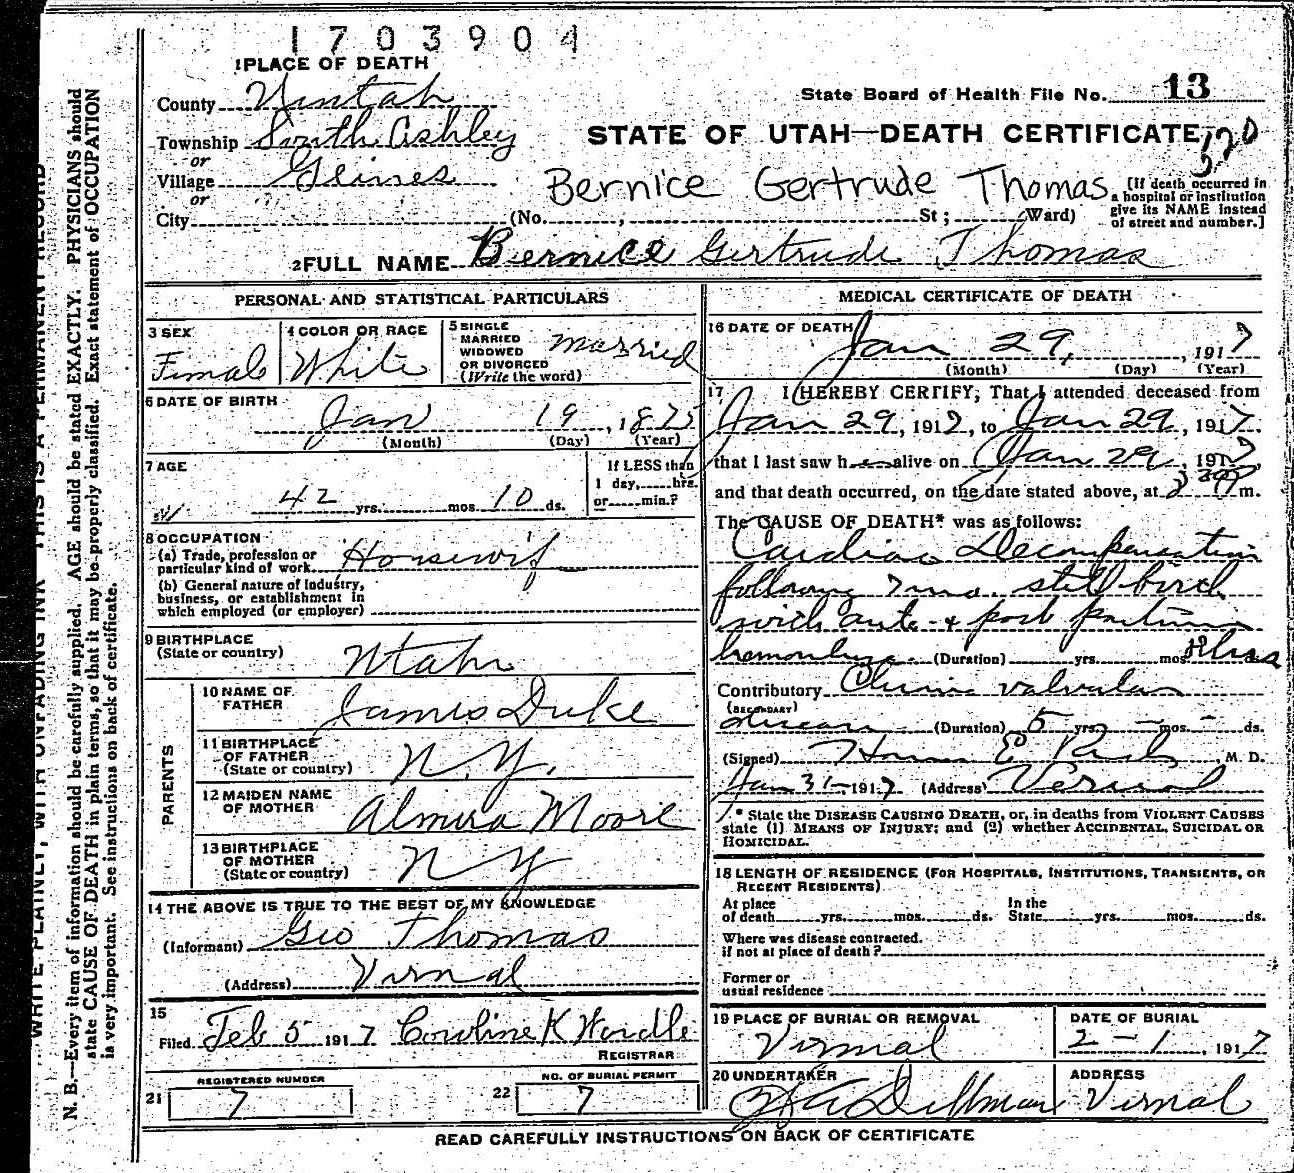 1703904
1 PLACE OF DEATH
County Uintah
State Board of Health File No. 13
Township South Ashley
STATE OF UTAH—DEATH CERTIFICATE
520
or
Village Glines
or
Bernice Gertrude Thomas
[If death occurred in
a hospital or institution
give its NAME instead
of street and number.]
City (No. , St ; Ward)
2 FULL NAME Bernice Gertrude Thomas
PERSONAL AND STATISTICAL PARTICULARS
3 SEX
Female
4 COLOR OR RACE
White
5 SINGLE
MARRIED
WIDOWED
OR DIVORCED
(Write the word)
married
6 DATE OF BIRTH
Jan 19, 1875
(Month) (Day) (Year)
7 AGE
42 yrs. mos. 10 ds.
If LESS than
1 day, hrs.
or min.?
8 OCCUPATION
(a) Trade, profession or
particular kind of work Housewif
(b) General nature of industry,
business, or establishment in
which employed (or employer)
9 BIRTHPLACE
(State or country) Utah
PARENTS
10 NAME OF
FATHER James Duke
11 BIRTHPLACE
OF FATHER
(State or country) N.Y.
12 MAIDEN NAME
OF MOTHER Almira Moore
13 BIRTHPLACE
OF MOTHER
(State or country) N Y
14 THE ABOVE IS TRUE TO THE BEST OF MY KNOWLEDGE
(Informant) Geo Thomas
(Address) Virnal
15
Filed Feb 5 1917 Caroline K Wardle
REGISTRAR
REGISTERED NUMBER
21 7
NO. OF BURIAL PERMIT
22 7
MEDICAL CERTIFICATE OF DEATH
16 DATE OF DEATH
Jan 29, , 1917
(Month) (Day) (Year)
17 I HEREBY CERTIFY, That I attended deceased from
Jan 29, 1917, to Jan 29, 1917
that I last saw her alive on Jan 29, 1917,
and that death occurred, on the date stated above, at m.
The CAUSE OF DEATH* was as follows:
Cardiac Decompensation
following 7 mo. still birth
with ante- & post partum
hemorrhage. (Duration) yrs. mos. hrs
Contributory Chronic valvular
(SECONDARY)
disease (Duration) 5 yrs. - mos. - ds.
(Signed) M. D.
Jan 31-1917 (Address) Vernal
* State the DISEASE CAUSING DEATH, or, in deaths from VIOLENT CAUSES
state (1) MEANS OF INJURY; and (2) whether ACCIDENTAL, SUICIDAL OR
HOMICIDAL.
18 LENGTH OF RESIDENCE (FOR HOSPITALS, INSTITUTIONS, TRANSIENTS, OR
RECENT RESIDENTS)
At place
of death yrs. mos. ds.
In the
State yrs. mos. ds.
Where was disease contracted.
if not at place of death?
Former or
usual residence
19 PLACE OF BURIAL OR REMOVAL
Virnal
DATE OF BURIAL
2-1, 1917
20 UNDERTAKER
Dillman
ADDRESS
Virnal
READ CAREFULLY INSTRUCTIONS ON BACK OF CERTIFICATE
WRITE PLAINLY, WITH UNFADING INK—THIS IS A PERMANENT RECORD
N. B.—Every item of information should be carefully supplied. AGE should be stated EXACTLY. PHYSICIANS should
state CAUSE OF DEATH in plain terms, so that it may be properly classified. Exact statement of OCCUPATION
is very important. See instructions on back of certificate.